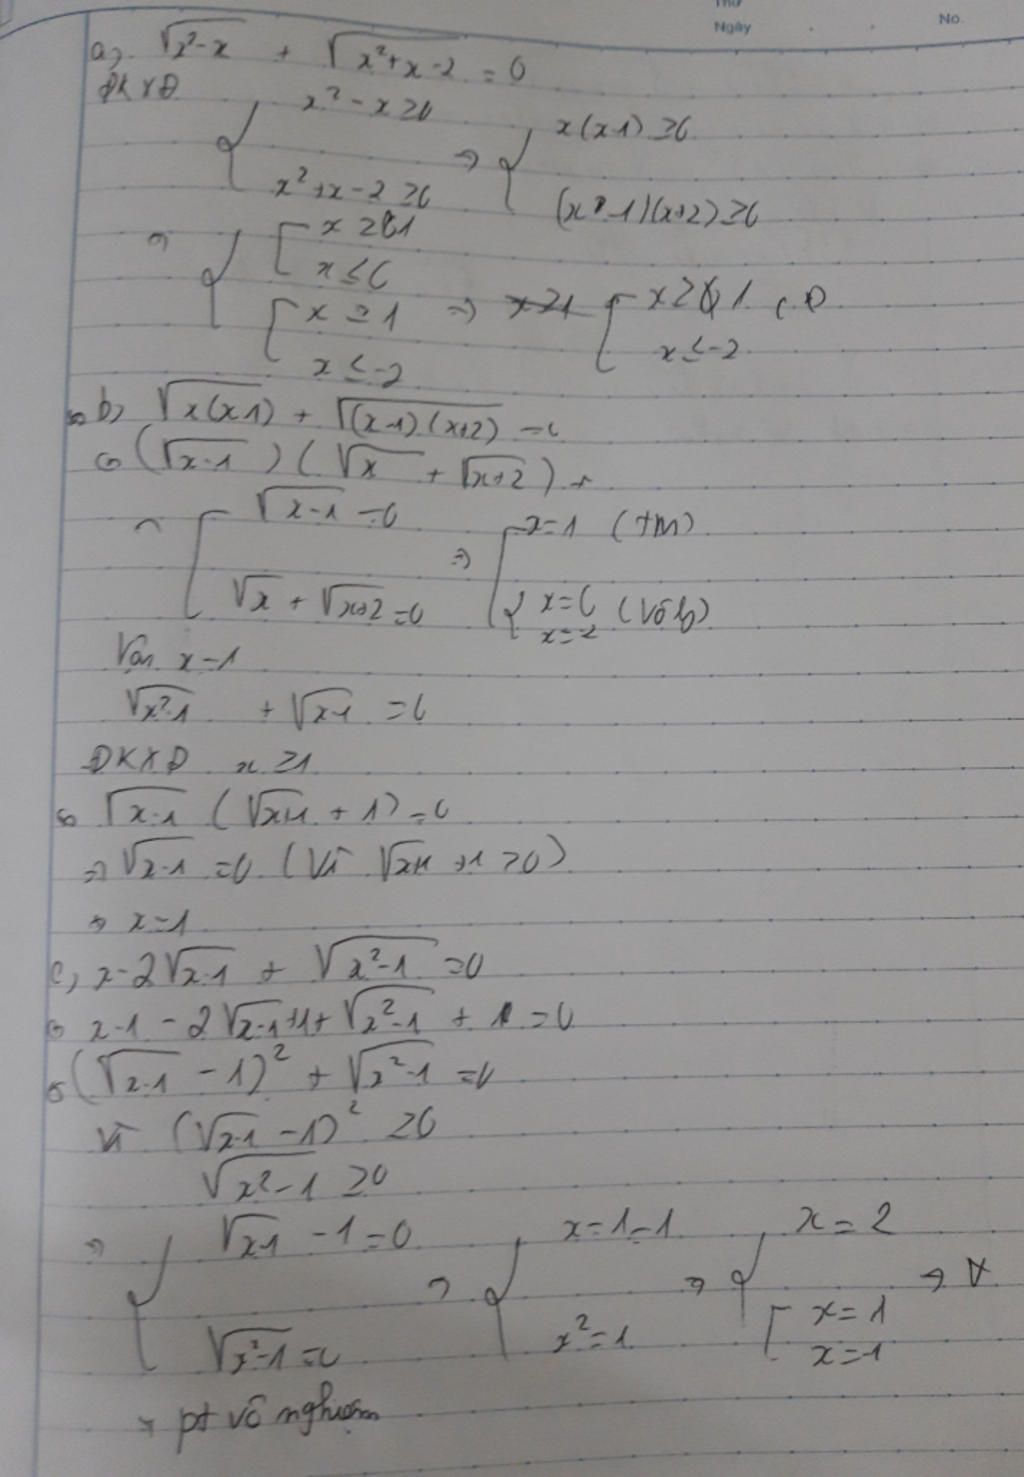 Thứ
Ngày No.
a, √(x²-x) + √(x²+x-2) = 0
ĐKXĐ { x²-x ≥ 0 ; x²+x-2 ≥ 0 ⇒ { x(x-1) ≥ 0 ; (x-1)(x+2) ≥ 0
⇒ { [ x ≥ 1 ; x ≤ 0 ; [ x ≥ 1 ; x ≤ -2 ⇒ [ x ≥ 1 ; x ≤ -2
b, √(x(x-1)) + √((x-1)(x+2)) = 0
⇔ (√(x-1)) (√x + √(x+2))
[ √(x-1) = 0 ; √x + √(x+2) = 0 ⇒ [ x=1 (tm) ; { x=0 ; x=-2 (Vô lý)
Vậy x=1
√(x²-1) + √(x-1) = 0
ĐKXĐ x ≥ 1
⇔ √(x-1) (√(x+1) + 1) = 0
⇒ √(x-1) = 0 (Vì √(x+1) + 1 > 0)
⇒ x=1
c, x-2√(x-1) + √(x²-1) = 0
⇔ x-1 - 2√(x-1) +1+ √(x²-1) = 0
⇔ (√(x-1) - 1)² + √(x²-1) = 0
Vì (√(x-1) - 1)² ≥ 0
√(x²-1) ≥ 0
⇒ { √(x-1) - 1 = 0 ; √(x²-1) = 0 ⇒ { x-1=1 ; x²=1 ⇒ { x = 2 ; [ x=1 ; x=-1 ⇒ V
⇒ pt vô nghiệm